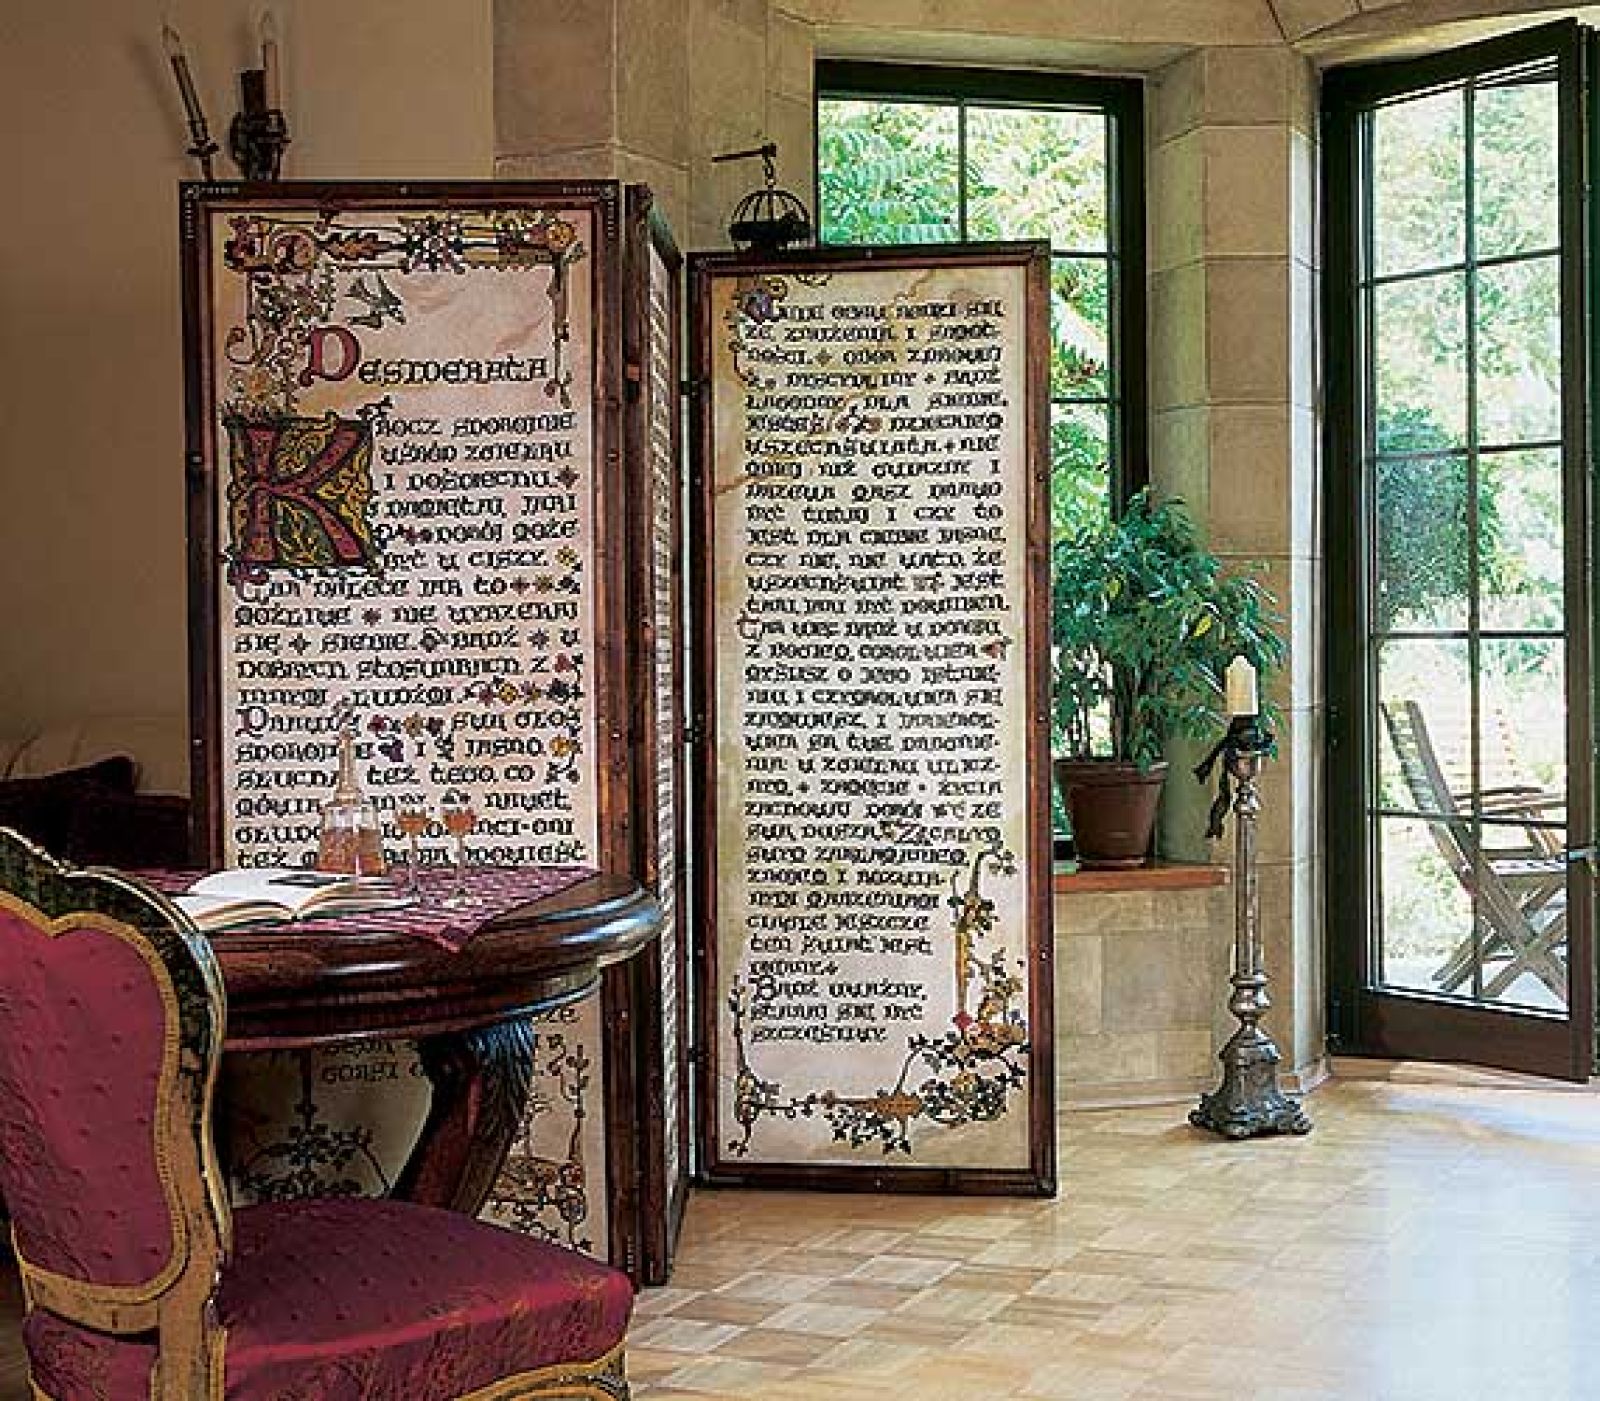 Desiderata
Krocz spokojnie
wśród zgiełku
i pośpiechu
pamiętaj jaki
pokój może
być w ciszy.
Tak dalece jak to
możliwe nie wyrzekaj
się siebie. Bądź w
dobrych stosunkach z
innymi ludźmi
Prawdę swą głoś
spokojnie i jasno
słuchaj też tego, co
mówią inni, nawet
też mają swą opowieść
że zmęczenia i samot-
ności. obok zdrowej
dyscypliny bądź
łagodny dla siebie.
Jesteś dzieckiem
wszechświata nie
mniej niż gwiazdy i
drzewa masz prawo
być tutaj i czy to
jest dla ciebie jasne,
czy nie, nie wątp, że
wszechświat jest
taki jaki być powinien.
Tak więc bądź w pokoju
z Bogiem, cokolwiek
myślisz o jego istnie-
niu i czymkolwiek się
zajmujesz i jakiekol-
wiek są twe pragnie-
nia w zgiełku ulicz-
nym, zamęcie życia
zachowaj pokój ze
swą duszą. Z całym
swym zakłamaniem,
znojem i rozwia-
nymi marzeniami
ciągle jeszcze
ten świat jest
piękny.
Bądź uważny,
staraj się być
szczęśliwy.